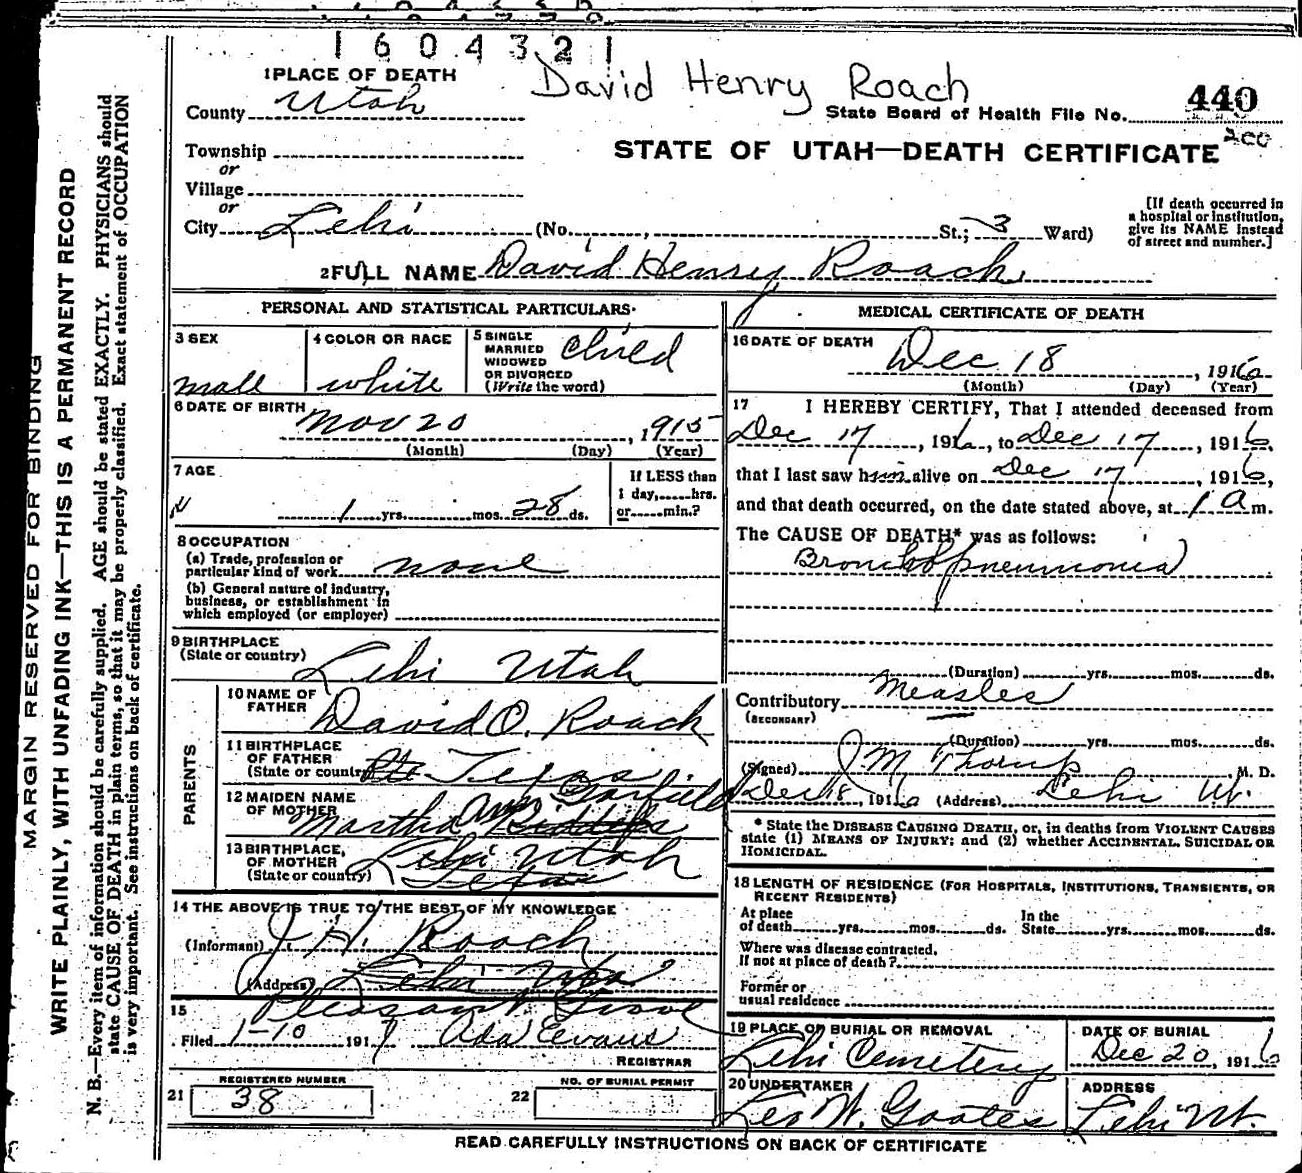 1604321
David Henry Roach
1 PLACE OF DEATH
County Utah
State Board of Health File No. 440
200
Township
or
Village
or
City Lehi (No. , St.; 3 Ward)
STATE OF UTAH—DEATH CERTIFICATE
[If death occurred in
a hospital or institution,
give its NAME instead
of street and number.]
2 FULL NAME David Henry Roach
PERSONAL AND STATISTICAL PARTICULARS
3 SEX
male
4 COLOR OR RACE
white
5 SINGLE
MARRIED
WIDOWED
OR DIVORCED
(Write the word)
child
6 DATE OF BIRTH
Nov 20, 1915
(Month) (Day) (Year)
7 AGE
1 yrs. mos. 28 ds.
If LESS than
1 day, hrs.
or min.?
8 OCCUPATION
(a) Trade, profession or
particular kind of work none
(b) General nature of industry,
business, or establishment in
which employed (or employer)
9 BIRTHPLACE
(State or country) Lehi Utah
PARENTS
10 NAME OF
FATHER David O. Roach
11 BIRTHPLACE
OF FATHER
(State or country) Texas
12 MAIDEN NAME
OF MOTHER Martha Ann Garfield
13 BIRTHPLACE,
OF MOTHER
(State or country) Lehi Utah
Texas
14 THE ABOVE IS TRUE TO THE BEST OF MY KNOWLEDGE
(Informant) J. H. Roach
(Address) Lehi Utah
Pleasant Grove
15
Filed 1-10 1917 Ada Evans
REGISTRAR
21 REGISTERED NUMBER
38
22 NO. OF BURIAL PERMIT
MEDICAL CERTIFICATE OF DEATH
16 DATE OF DEATH
Dec 18, 1916
(Month) (Day) (Year)
17 I HEREBY CERTIFY, That I attended deceased from
Dec 17, 1916, to Dec 17, 1916,
that I last saw him alive on Dec 17, 1916,
and that death occurred, on the date stated above, at 1 a m.
The CAUSE OF DEATH* was as follows:
Bronchopneumonia
(Duration) yrs. mos. ds.
Contributory Measles
(SECONDARY)
(Duration) yrs. mos. ds.
(Signed) J M Thorup, M. D.
Dec 18, 1916 (Address) Lehi Ut.
* State the DISEASE CAUSING DEATH, or, in deaths from VIOLENT CAUSES
state (1) MEANS OF INJURY; and (2) whether ACCIDENTAL, SUICIDAL OR
HOMICIDAL.
18 LENGTH OF RESIDENCE (FOR HOSPITALS, INSTITUTIONS, TRANSIENTS, OR
RECENT RESIDENTS)
At place
of death yrs. mos. ds.
In the
State yrs. mos. ds.
Where was disease contracted,
If not at place of death?
Former or
usual residence
19 PLACE OF BURIAL OR REMOVAL
Lehi Cemetery
DATE OF BURIAL
Dec 20, 1916
20 UNDERTAKER
Leo W. Goates
ADDRESS
Lehi Ut.
READ CAREFULLY INSTRUCTIONS ON BACK OF CERTIFICATE
MARGIN RESERVED FOR BINDING
WRITE PLAINLY, WITH UNFADING INK—THIS IS A PERMANENT RECORD
N. B.—Every item of information should be carefully supplied. AGE should be stated EXACTLY. PHYSICIANS should
state CAUSE OF DEATH in plain terms, so that it may be properly classified. Exact statement of OCCUPATION
is very important. See instructions on back of certificate.